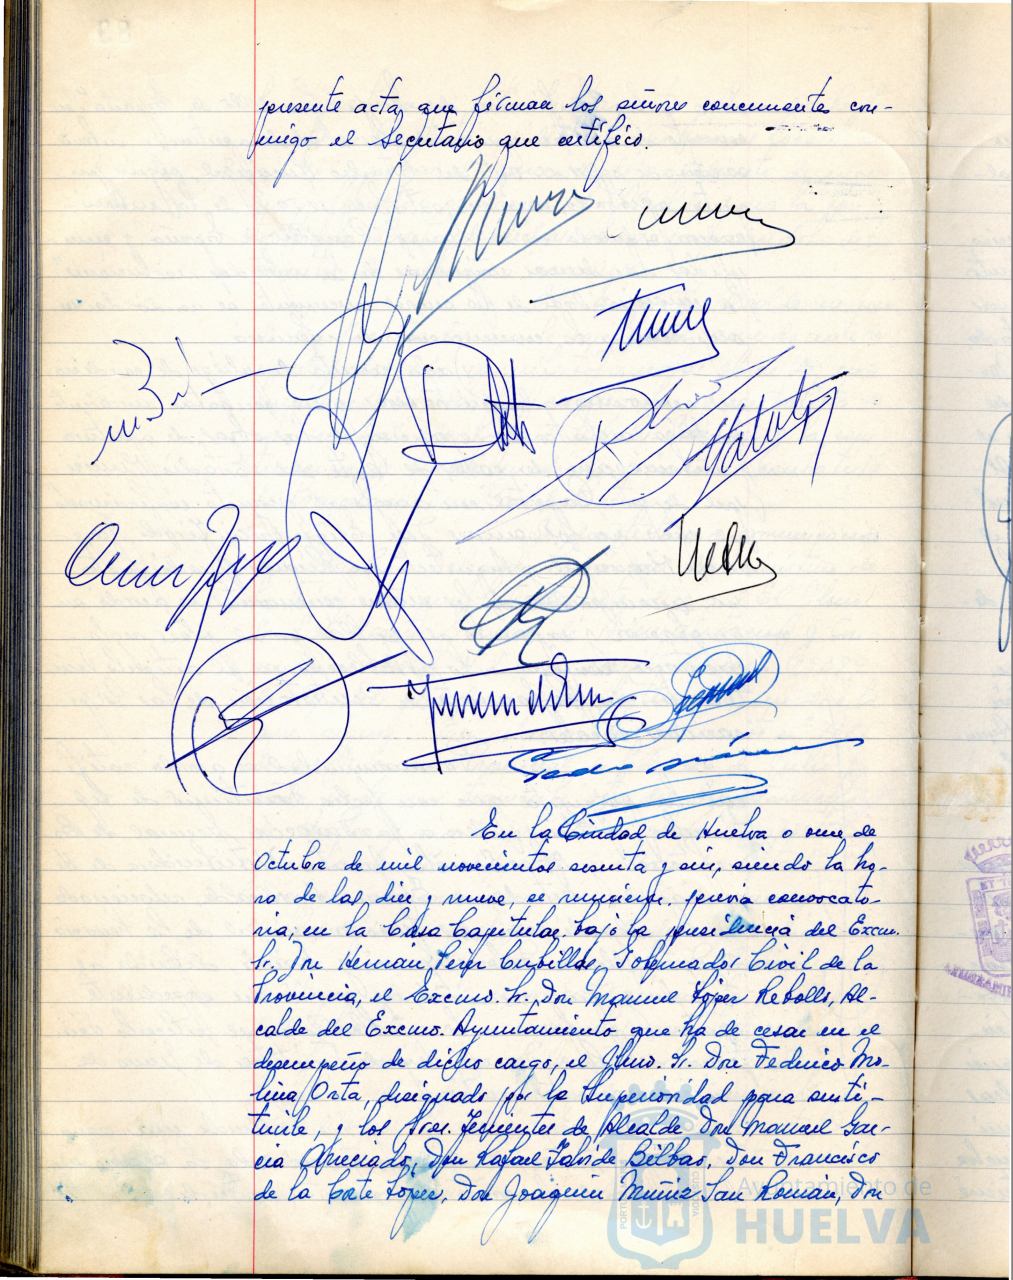 presente acta, que firman los señores concurrentes con-
migo el Secretario que certifico.
En la Ciudad de Huelva a once de
Octubre de mil novecientos sesenta y seis, siendo la ho-
ra de las diez y nueve, se reunieron, previa convocato-
ria, en la Casa Capitular, bajo la presidencia del Excmo.
Sr. Don Hernán Pérez Cubillas, Gobernador Civil de la
Provincia, el Excmo. Sr. Don Manuel López Rebollo, Al-
calde del Excmo. Ayuntamiento que ha de cesar en el
desempeño de dicho cargo, el Iltmo. Sr. Don Federico Mo-
lina Orta, designado por la Superioridad para susti-
tuirle, y los Sres. Tenientes de Alcalde Don Manuel Gar-
cia Don Rafael de Bilbao, Don Francisco
de la Corte López, Don Joaquín Muñiz San Román, Don
Ayuntamiento de
HUELVA